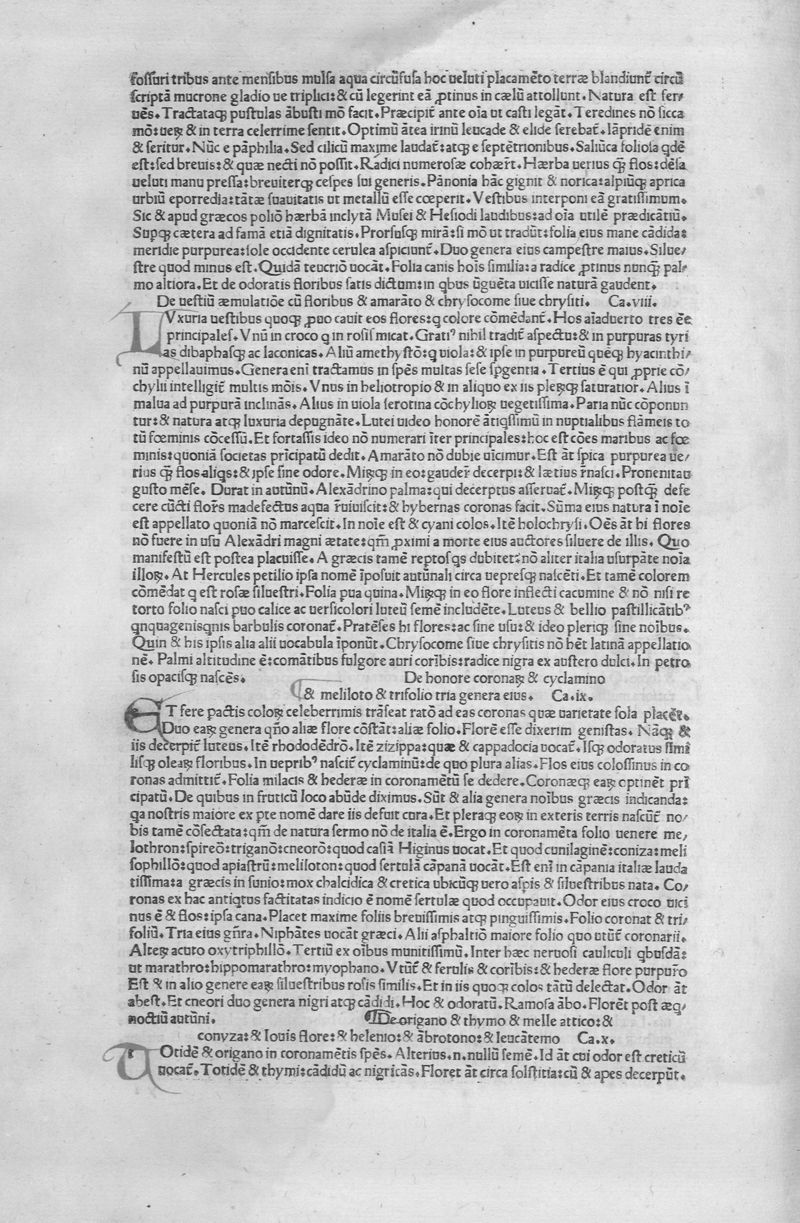 fossuri tribus ante mensibus mulsa aqua circūfusa hoc ueluti placamēto terræ blandiunt᷑ circū
scriptā mucrone gladio ue triplici:& cū legerint eā ꝓtinus in cælū attollunt. Natura est fer/
uēs. Tractataqꝫ pustulas ābusti mō facit. Præcipit᷑ ante oīa ut casti legāt. Teredines nō sicca
mō:ueꝝ & in terra celerrime sentit. Optimū ātea irinū leucade & elide ferebat᷑. Iāpridē enim
& seritur. Nūc e pāphilia. Sed cilicū maxime laudat᷑:atqꝫ e septētrionibus. Saliūca foliosa qdē
est:sed breuis:& quæ necti nō possit. Radici numerosæ cohær᷑t. Hærba uerius qꝫ flos:dēsa
ueluti manu pressa:breuiterqꝫ cespes sui generis. Pānonia hāc gignit & norica:alpiūqꝫ aprica
urbiū eporredia:tātæ suauitatis ut metallū esse cœperit. Vestibus interponi eā gratissimum.
Sic & apud græcos poliō hærbā inclytā Musei & Hesiodi laudibus:ad oīa utilē prædicātiū.
Supqꝫ cætera ad famā etiā dignitatis. Prorsusqꝫ mirā:si mō ut tradūt:folia eius mane cādida:
meridie purpurea:sole occidente cerulea aspiciunt᷑. Duo genera eius campestre maius. Silue/
stre quod minus est. Quidā teucriō uocāt. Folia canis hoīs similia:a radice ꝓtinus nunqꝫ pal/
mo altiora. Et de odoratis floribus satis dictum:in qbus ūguēta uicisse naturā gaudent.
De uestiū æmulatiōe cū floribus & amarāto & chrysocome siue chrysiti. Ca.viii.
LVxuria uestibus quoqꝫ ꝓuocauit eos flores:q colore cōmēdant᷑. Hos aīaduerto tres ēē
principales. Vnū in croco q in rosis micat. Gratiꝰ nihil tradit᷑ aspectu:& in purpuras tyri
as dibaphasqꝫ ac laconicas. Aliū amethystō:q uiola:& ipse in purpureū quēqꝫ hyacinthi/
nū appellauimus. Genera eni᷑ tractamus in spēs multas sese spgentia. Tertius ē qui ꝓprie cō/
chylii intelligit᷑ multis mōis. Vnus in heliotropio & in aliquo ex iis pleꝝqꝫ saturatior. Alius ī
malua ad purpurā inclinās. Alius in uiola serotina cōchylioꝝ uegetissima. Paria nūc cōponun
tur:& natura atqꝫ luxuria depugnāte. Lutei uideo honorē ātiqssimū in nuptialibus flāmeis to
tū fœminis cōcessū. Et fortassis ideo nō numerari īter principales:hoc est cōes maribus ac fœ
minis:quoniā societas prīcipatū dedit. Amarāto nō dubie uīcimur. Est āt spica purpurea ue/
rius qꝫ flos aliqs:& ipse sine odore. Miꝝqꝫ in eo:gauder᷑ decerpi:& lætius r᷑nasci. Prouenit au
gusto mēse. Durat in autūnū. Alexādrino palma:qui decerptus asseruat᷑. Miꝝqꝫ postqꝫ defe
cere cūcti flor᷑s madefectus aqua r᷑uiuiscit:& hybernas coronas facit. Sūma eius natura ī noīe
est appellato quoniā nō marcescit. In noīe est & cyani colos. Itē holochrysi. Oēs āt hi flores
nō fuere in usu Alexādri magni ætate:qm̄ ꝓximi a morte eius auctores siluere de illis. Quo
manifestū est postea placuisse. A græcis tamē reptos qs dubitet:nō aliter italia usurpāte noīa
illoꝝ. At Hercules petilio ipsa nomē īposuit autūnali circa uepresqꝫ nascēti. Et tamē colorem
cōmēdat q est rosæ siluestri. Folia pua quina. Miꝝqꝫ in eo flore inflecti cacumine & nō nisi re
torto folio nasci puo calice ac uersicolori luteū semē includēte. Luteus & bellio pastillicātibꝰ
qnquagenisqnis barbulis coronat᷑. Pratēses hi flores:ac sine usu:& ideo pleriqꝫ sine noībus.
Quin & his ipsis alia alii uocabula īponūt. Chrysocome siue chrysitis nō hēt latinā appellatio
nē. Palmi altitudine ē:comātibus fulgore auri corībis:radice nigra ex austero dulci. In petro
sis opacisqꝫ nascēs. De honore coronaꝝ & cyclamino
& meliloto & trifolio tria genera eius. Ca.ix.
ET fere pactis coloꝝ celeberrimis trāseat ratō ad eas coronas quæ uarietate sola placēt.
Duo eaꝝ genera qn̄o aliæ flore cōstāt:aliæ folio. Florē esse dixerim genistas. Nāqꝫ &
iis decerpit᷑ luteus. Itē rhododēdrō. Itē zizippa:quæ & cappadocia uocat᷑. Isqꝫ odoratus simi
lisqꝫ oleaꝝ floribus. In ueprībꝰ nascit᷑ cyclaminū:de quo plura alias. Flos eius colossinus in co
ronas admittit᷑. Folia milacis & hederæ in coronamētū se dedere. Coronæqꝫ eaꝝ optinēt prī
cipatū. De quibus in fruticū loco abūde diximus. Sūt & alia genera noībus græcis indicanda:
qa nostris maiore ex pte nomē dare iis defuit cura. Et pleraqꝫ eoꝝ in exteris terris nascūt᷑ no/
bis tamē cōsectata:qm̄ de natura sermo nō de italia ē. Ergo in coronamēta folio uenere me/
lothron:spireō:triganō:cneorō:quod casiā Higinus uocat. Et quod cunilaginē:coniza:meli
sophillō:quod apiastrū:meliloton:quod sertulā cāpanā uocāt. Est eni᷑ in cāpania italiæ lauda
tissima:a græcis in sunio:mox chalcidica & cretica ubicūqꝫ uero aspis & siluestribus nata. Co/
ronas ex hac antiqtus factitatas indicio ē nomē sertulæ quod occupauit. Odor eius croco uici
nus ē & flos:ipsa cana. Placet maxime foliis breuissimis atqꝫ pinguissimis. Folio coronat & tri/
foliū. Tria eius gn̄ra. Niphātes uocāt græci. Alii asphaltiō maiore folio quo utūt᷑ coronarii.
Alteꝝ acuto oxytriphillō. Tertiū ex oībus munitissimū. Inter hæc neruosi cauliculi qbusdā:
ut marathro:hippomarathro:myophano. Vtūt᷑ & ferulis & corībis:& hederæ flore purpur᷑o
Est & in alio genere eaꝝ siluestribus rosis similis. Et in iis quoqꝫ colos tātū delectat. Odor āt
abest. Et cneori duo genera nigri atqꝫ cādidi. Hoc & odoratū. Ramosa ābo. Florēt post æq/
noctiū autūni. De origano & thymo & melle attico:&
conyza:& Iouis flore:& helenio:& ābrotono:& leucātemo Ca.x.
TOtidē & origano in coronamētis spēs. Alterius.n.nullū semē. Id āt cui odor est creticū
uocat᷑. Totidē & thymi:cādidū ac nigricās. Floret āt circa solstitia:cū & apes decerpūt.